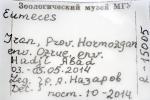 Зоологический музей МГУ
Eumeces
Iran, Prov. Hormozgan
env. Ozive, env.
Hadji Abad
03.-05.05.2014
Leg. Р.А. Назаров
Det. пост. 10-2014
R-13005